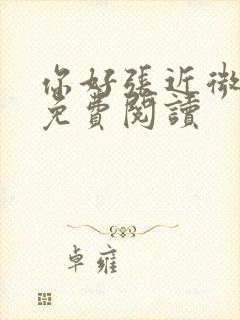 你好張近微
免費閱讀
卓雍